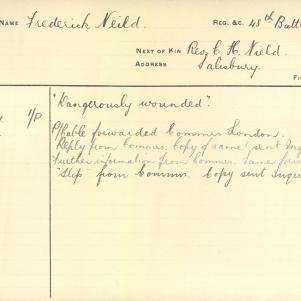 NAME Frederick Neild. REG. &C. 48th Batt
NEXT OF KIN Rev. C. H. Nield.
ADDRESS Salisbury.
"Dangerously wounded".
1/P P/Cable forwarded Commrs London.
Reply from Commrs. Copy of same sent Inq
Further information from Commrs. Same forw
"Slip" from Commrs. Copy sent Inqui